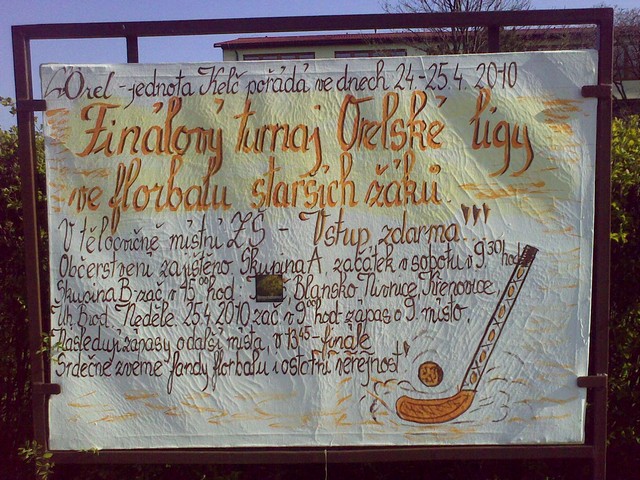 Orel - jednota Kelč pořádá ve dnech 24.-25.4. 2010
Finálový turnaj Orelské ligy
ve florbalu starších žáků.
V tělocvičně místní ZŠ - Vstup zdarma!!!
Občerstvení zajištěno. Skupina A začátek v sobotu v 9³⁰hod
Skupina B zač. v 15⁰⁰hod. Blansko, Tvrdonice, Křenovice
Uh. Brod. Neděle 25.4.2010 zač. v 9⁰⁰hod zápas o 9. místo.
Následují zápasy o další místa, v 13⁴⁵ - finále
Srdečně zveme fandy florbalu i ostatní veřejnost!